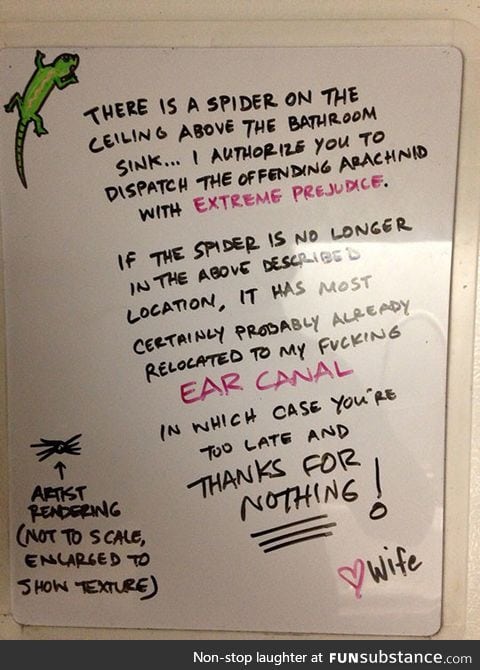 THERE IS A SPIDER ON THE
CEILING ABOVE THE BATHROOM
SINK... I AUTHORIZE YOU TO
DISPATCH THE OFFENDING ARACHNID
WITH EXTREME PREJUDICE.
IF THE SPIDER IS NO LONGER
IN THE ABOVE DESCRIBED
LOCATION, IT HAS MOST
CERTAINLY PROBABLY ALREADY
RELOCATED TO MY FUCKING
EAR CANAL
IN WHICH CASE YOU'RE
TOO LATE AND
THANKS FOR
NOTHING!
♡Wife
↑
ARTIST
RENDERING
(NOT TO SCALE,
ENLARGED TO
SHOW TEXTURE)
Non-stop laughter at FUNsubstance.com